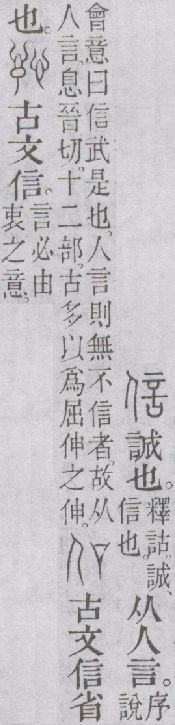 信 誠也。釋詁。誠、信也。从人言。序說
會意曰信武是也。人言則無不信者。故从人言。息晉切。十二部。古多以爲屈伸之伸。古文信省
也。古文信。言必由衷之意。